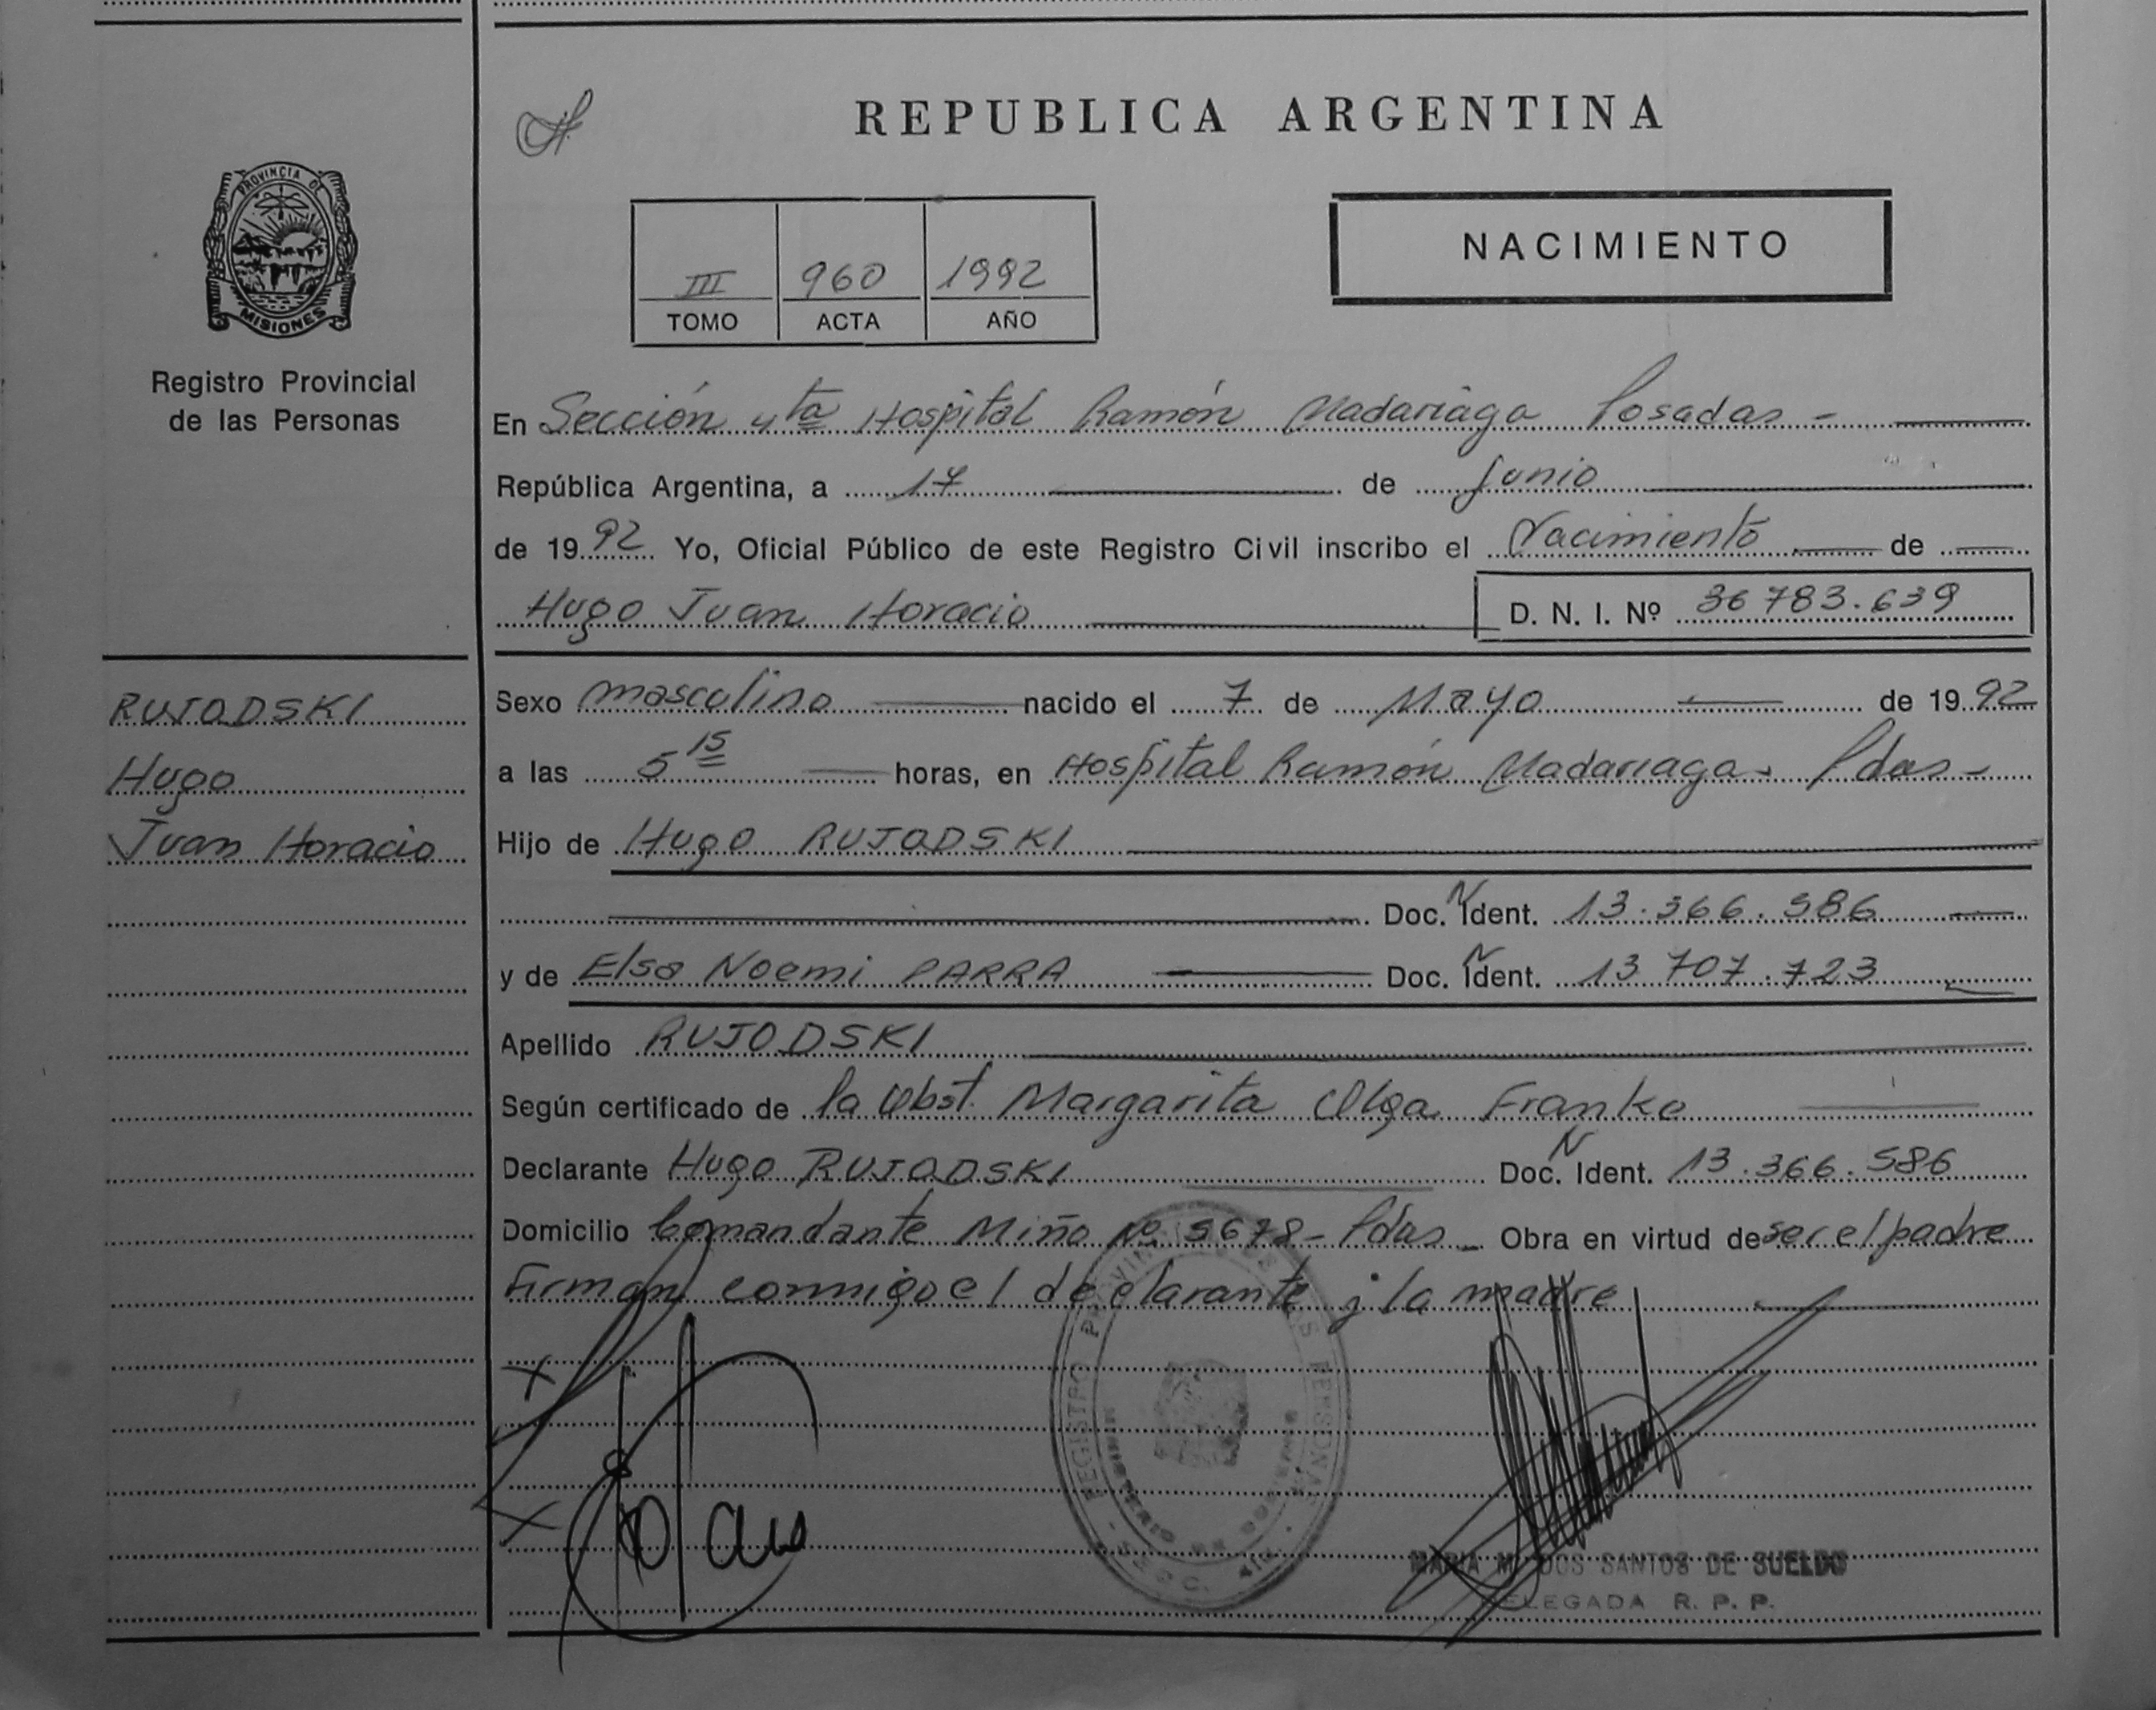 REPUBLICA ARGENTINA
PROVINCIA DE
MISIONES
Registro Provincial
de las Personas
III 960 1992
TOMO ACTA AÑO
NACIMIENTO
En Sección 4ta Hospital Ramón Madariaga Posadas -
República Argentina, a 17 de Junio
de 1992 Yo, Oficial Público de este Registro Civil inscribo el Nacimiento de
Hugo Juan Horacio D. N. I. Nº 36783.639
RUJODSKI
Hugo
Juan Horacio
Sexo masculino nacido el 7 de Mayo de 1992
a las 5 15 horas, en Hospital Ramón Madariaga - Pdas -
Hijo de Hugo RUJODSKI
Doc. N Ident. 13.366.586
y de Elsa Noemi PARRA Doc. N Ident. 13 707.723
Apellido RUJODSKI
Según certificado de la Obst. Margarita Olga Franke
Declarante Hugo RUJODSKI Doc. N Ident. 13.366.586
Domicilio Comandante Miño Nº 5678 - Pdas - Obra en virtud de ser el padre
Firman conmigo el declarante y la madre
REGISTRO PROVINCIAL DE LAS PERSONAS
MARIA M. DOS SANTOS DE SUELDO
DELEGADA R. P. P.